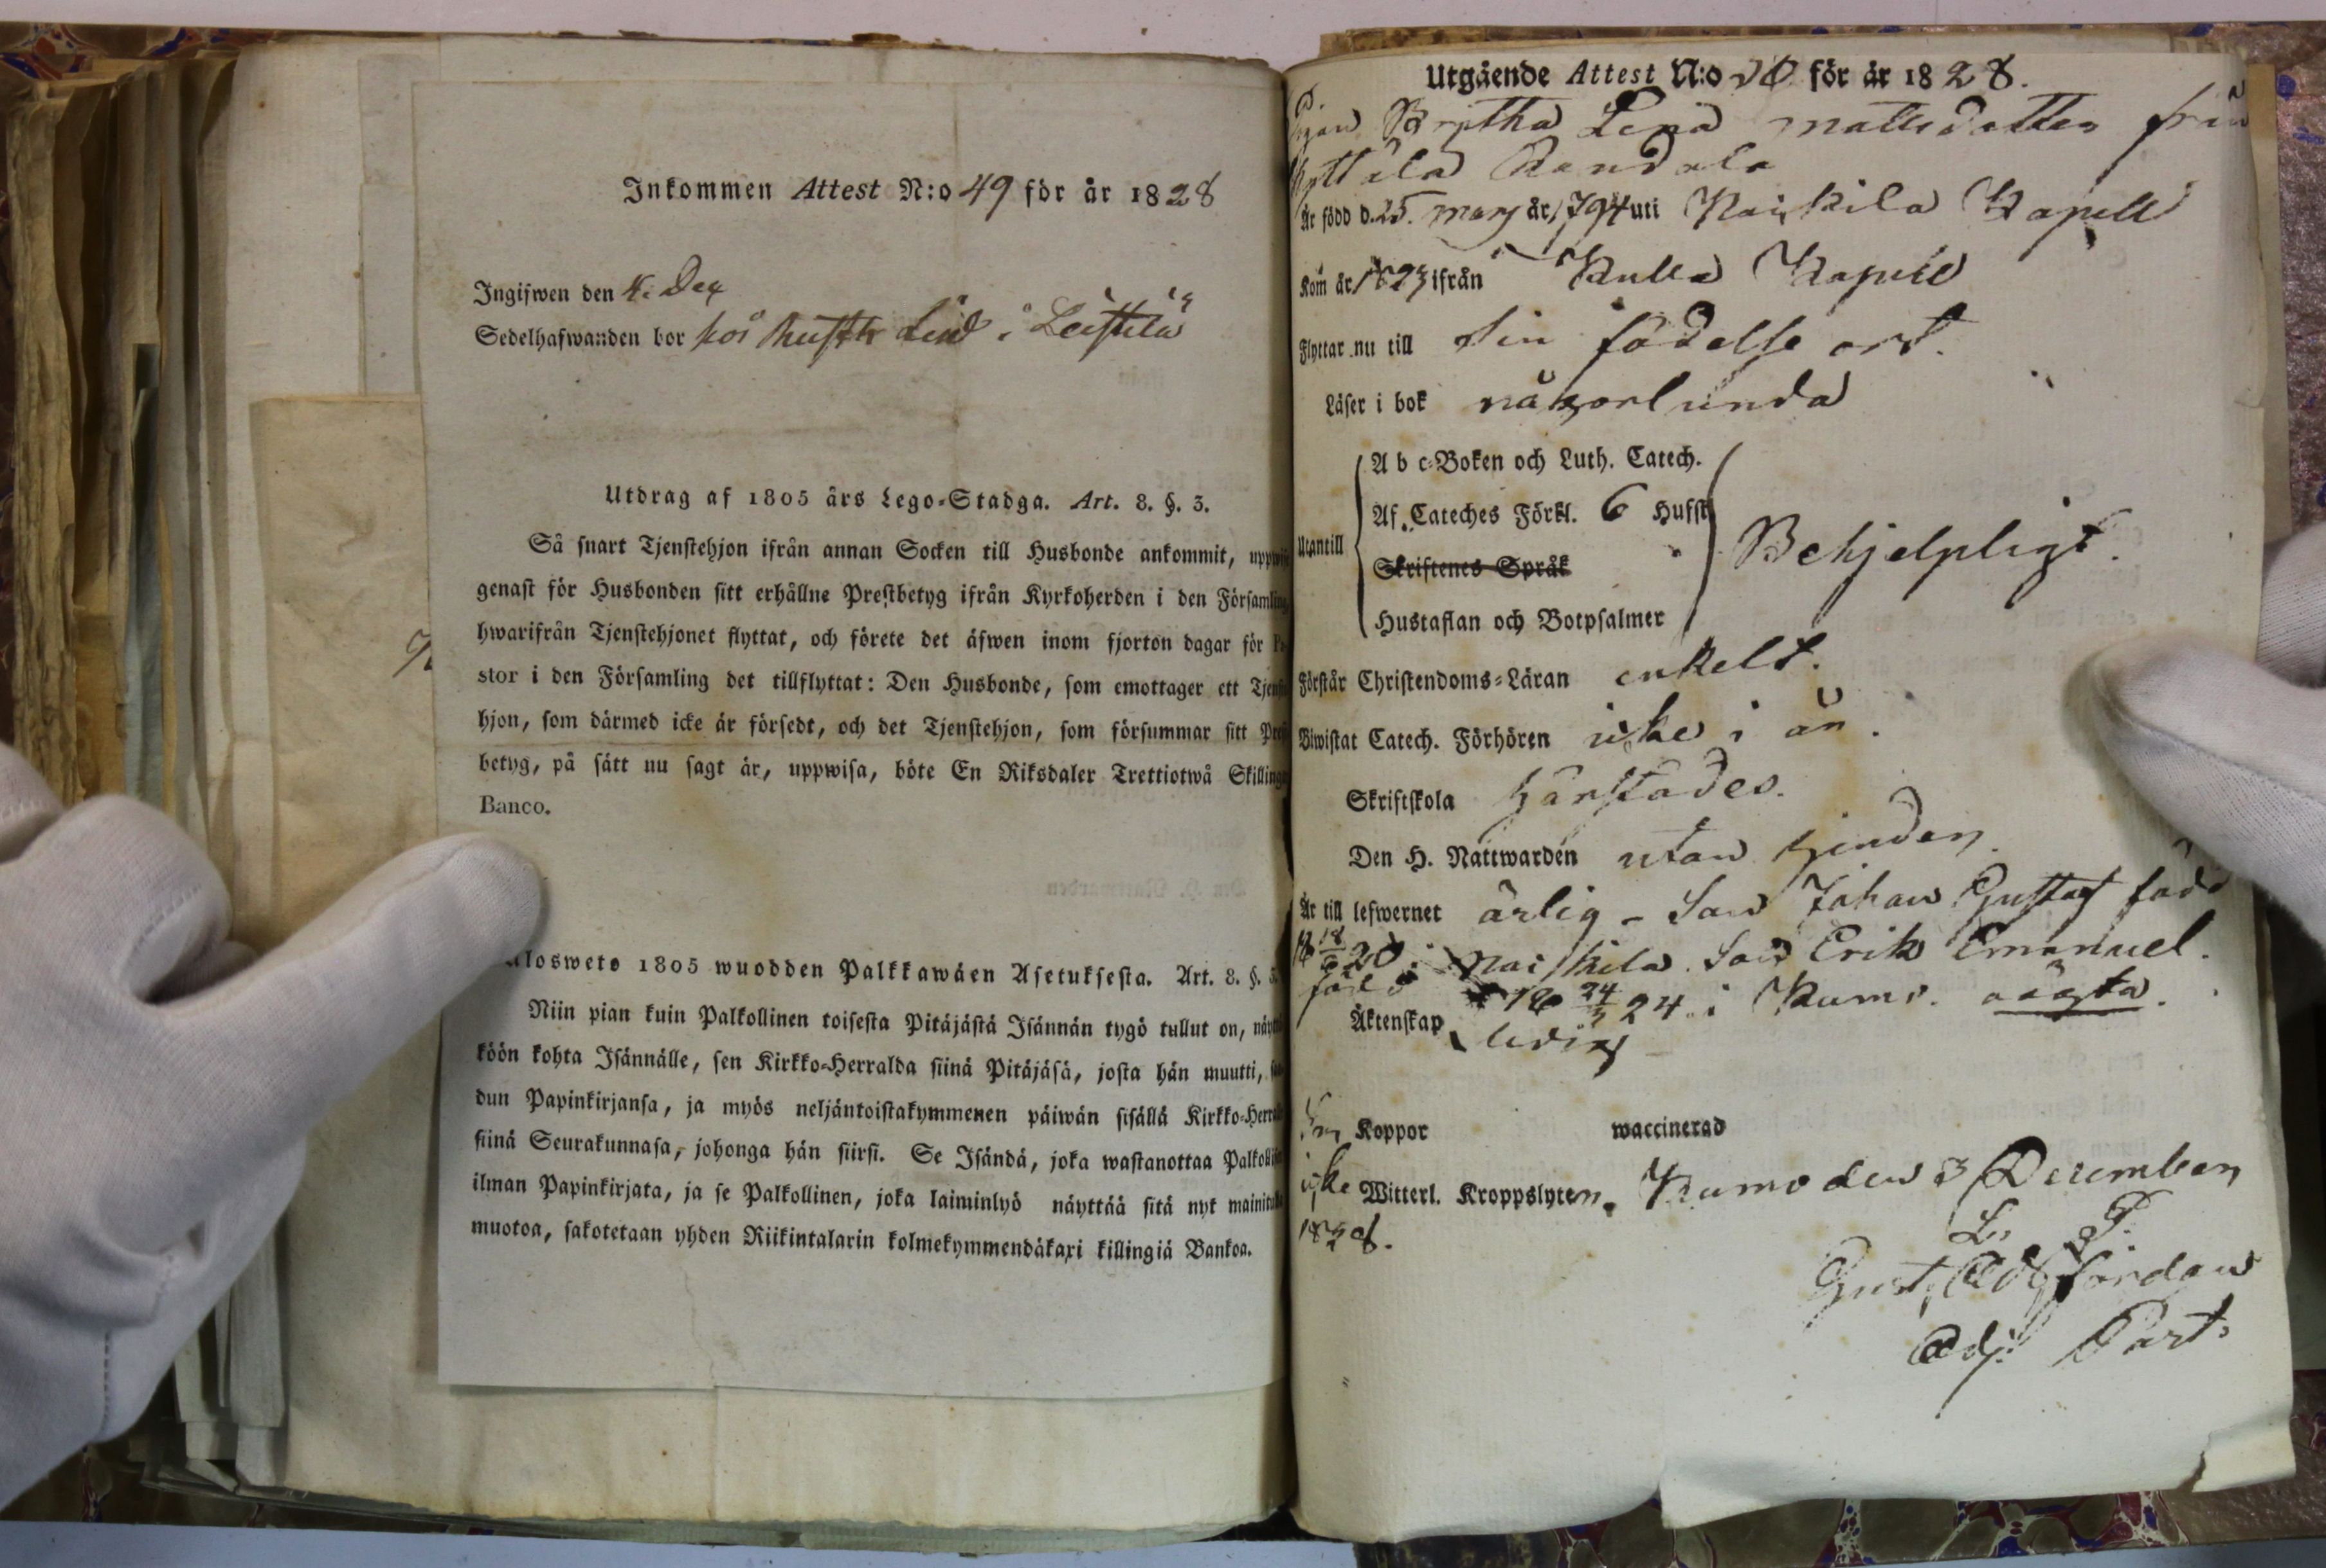 Inkommen Attest N:o 49 för år 1828
Ingifwen den 4. Dec
Sedelhafwanden bor hos Lind i Leistilä
Utdrag af 1805 års Lego-Stadga. Art. 8. §. 3.
Så snart Tjenstehjon ifrån annan Socken till Husbonde ankommit, upp
genast för Husbonden sitt erhållne Prestbetyg ifrån Kyrkoherden i den Församling
hwarifrån Tjenstehjonet flyttat, och förete det äfwen inom fjorton dagar för Pa
stor i den Församling det tillflyttat: Den Husbonde, som emottager ett Tjenste
hjon, som därmed icke är försedt, och det Tjenstehjon, som försummar sitt Prest
betyg, på sätt nu sagt är, uppwisa, böte En Riksdaler Trettiotwå Skillingar
Banco.
Ulosweto 1805 wuodden Palkkawäen Asetuksesta. Art. 8. §. 3.
Niin pian kuin Palkollinen toisesta Pitäjästä Isännän tygö tullut on, näyt
köön kohta Isännälle, sen Kirkko-Herralda siinä Pitäjäsä, josta hän muutti,
dun Papinkirjansa, ja myös neljäntoistakymmenen päiwän sisällä Kirkko-Herra
siinä Seurakunnasa, johonga hän siirsi. Se Isändä, joka wastanottaa Palkolli
ilman Papinkirjata, ja se Palkollinen, joka laiminlyö näyttää sitä nyt mainitulla
muotoa, sakotetaan yhden Riikintalarin kolmekymmendäkaxi killingiä Bankoa.
Utgående Attest N:o för år 1828.
Pigan Brytha Lena Mattsdotter från
Kyttälä
Är född d. 25. Mars år 1794 uti Kaskila Kapell
Kom år 1823 ifrån Kulla Kapell
Flyttar nu till sin födelse ort.
Läser i bok någorlunda
Utantill
A b c-Boken och Luth. Catech.
Af Cateches Förkl. 6 Hufst
Skriftenes Språk
Hustaflan och Botpsalmer
Behjelpligt.
Förstår Christendoms-Läran enkelt.
Biwistat Catech. Förhören icke i år.
Skriftskola härstädes.
Den H. Nattwarden utan hinder.
Är till lefwernet ärlig - Son Johan Gustaf född
18 18/6 20 i Son Erik Emanuel.
född 18 24/3 24 i Kumo. oägta.
Äktenskap ledig
Har Koppor waccinerad
icke Witterl. Kroppslyten. Kumo den 3 December
1828.
L. P.
Gust. Adf Jordan
Adj. Past.